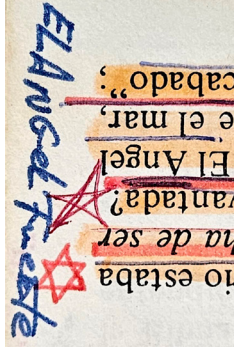 io estaba
ha de ser
vantada?
El Angel
e el mar,
cabado”;
EL ANGel Fuerte